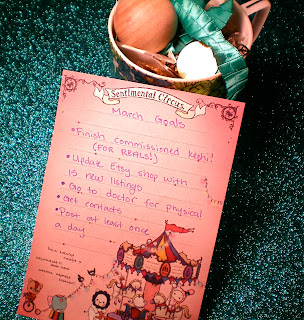 Sentimental Circus
March Goals
• Finish commissioned keshi!
(FOR REALS!)
• Update Etsy shop with
15 new listings
• Go to doctor for physical
• get contacts
• Post at least once
a day